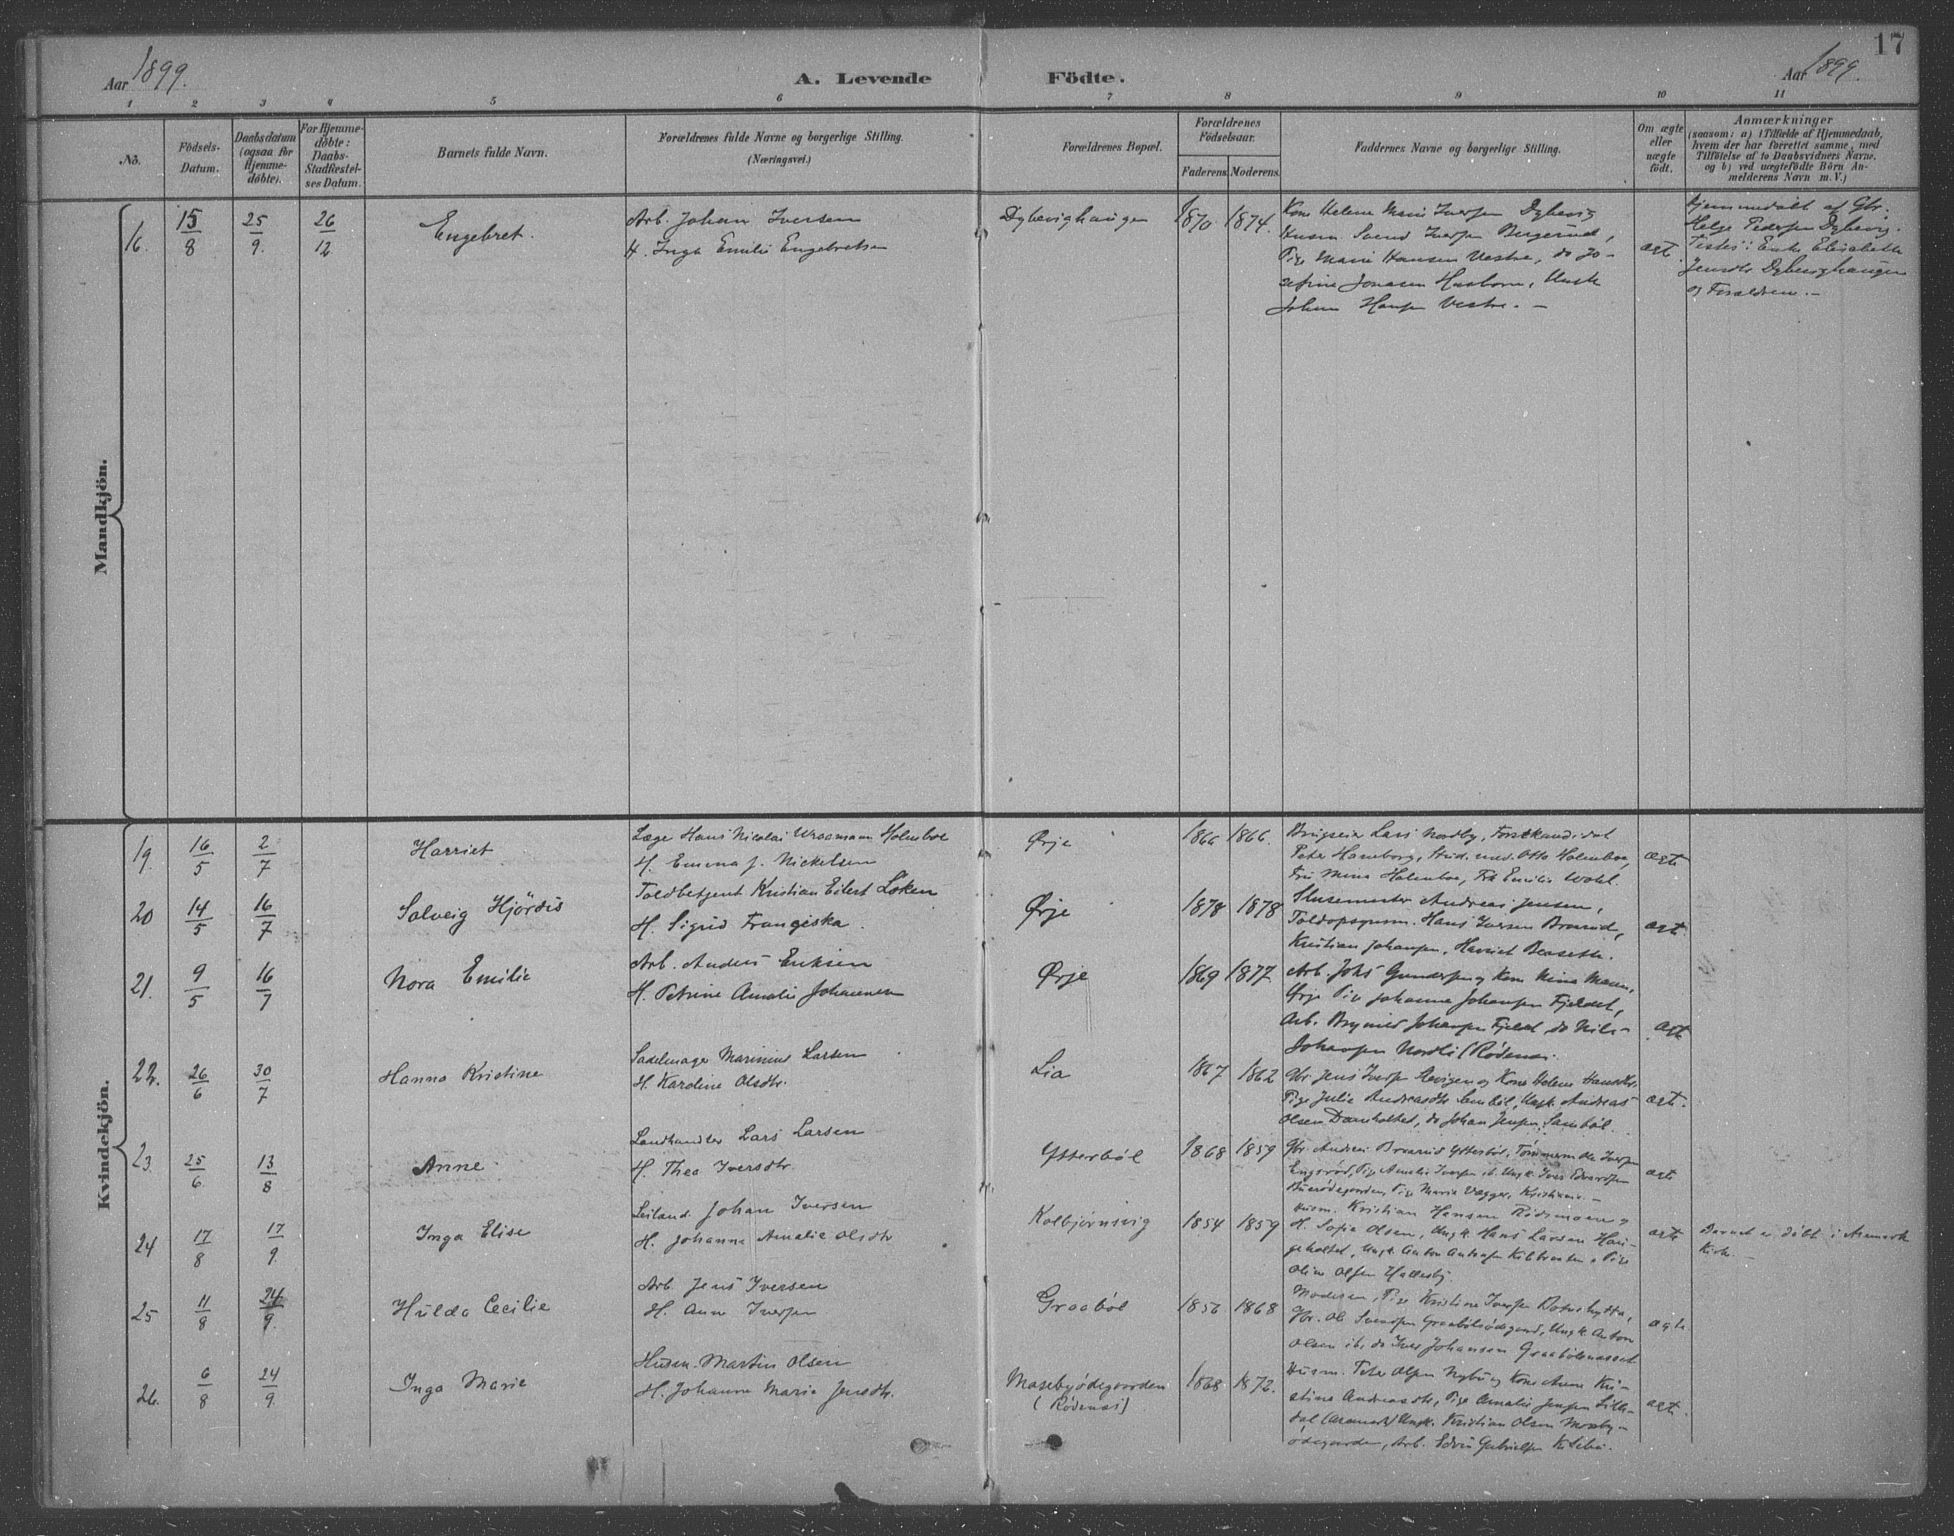 17
Aar 1899.
A. Levende Födte.
Aar 1899.
1 2 3 4 5 6 7 8 9 10 11
No.
Födsels-Datum.
Daabsdatum (ogsaa for Hjemme-döbte).
For Hjemme-döbte: Daabs-Stadfæstel-ses Datum.
Barnets fulde Navn.
Forældrenes fulde Navne og borgerlige Stilling.
(Næringsvei.)
Forældrenes Bopæl.
Forældrenes Födselsaar.
Faderens Moderens.
Faddernes Navne og borgerlige Stilling.
Om ægte eller uægte födt.
Anmærkninger
(saasom: a) i Tilfælde af Hjemmedaab,
hvem der har forrettet samme, med
Tilföielse af to Daabsvidners Navne,
og b) ved uægtefödte Börn An-
melderens Navn m. V.)
Mandkjön.
16. 15/8 25/9. 26/12 Engebret.
Arb. Johan Iversen
H. Inga Emilie Engebretsen
Dybevighaugen 1870. 1874.
Kone Helene Marie Iversen Dybevig
Husm Svend Iversen Bergerud,
Pige Marie Hansen Vestre, do Jo-
sefine Jonassen, Ungk
Johan Hansen Vestre. —
ægt.
Hjemmedøbt af Gbr.
Helge Pedersen Dybevig.
Testes: Enke Elisabeth
Jensdtr Dybevighaugen
og Forældrene. —
Kvindekjön.
19. 16/5 2/7 Harriet
Læge Hans Nicolai Holmboe
H. Emma J. Nickelsen
Ørje 1866 1866.
Brugseier Lars Nordby, Forstkandidat
Peter Haneborg, Stud. med. Otto Holmboe,
Fru Mina Holmboe, Frk Emilie Wohl.
ægte
20 14/5 16/7 Solveig Hjördis
Toldbetjent Kristian Eilert Løken
H. Sigrid Frangiska.
Ørje 1878 1878
Slusemester Andreas Jensen,
Toldopsynsm. Hans Iversen Braarud,
Kristian Johansen, Harriet
ægt.
21. 9/5 16/7 Nora Emilie
Arb. Anders Eriksen
H. Petrine Amalie Johannesen
Ørje 1869 1877.
Arb. Johs Gundersen og Kone Mina
Ørje Pige Johanna Johansen Fjeldet,
Arb. Johansen Fjeldet, do Nils
Johansen Nordli (Rødenæs.
ægt
22. 26/6 30/7 Hanna Kristine
Sadelmager Marinius Larsen
H. Karoline Olsdtr.
Lia 1867 1862
Gbr. Jens Iversen og Kone Helene Hansdtr.
Pige Julie Andreasdtr Sambøl, Ungk. Andreas
Olsen Damholtet, do Johan Jensen Sambøl.
ægt.
23. 25/6 13/8 Anne
Landhandler Lars Larsen
H. Thea Iversdtr.
Ytterbøl 1868 1859
Gbr. Andreas Braarud Ytterbøl, Tømmerm Ole Iversen
Engsrød, Pige Amalie Iversen ib. Ungk. Iver Edvardsen
Buerødegaarden, Pige Maria Vegger, Kristiania. —
ægt
24 17/8 17/9. Inga Elise
Leiland. Johan Iversen
H. Johanne Amalie Olsdtr
Kolbjørnsvig 1854 1859
Husm. Kristian Hansen Rødsmoen og
H. Sofie Olsen, Ungk. Hans Larsen Hau-
geholtet, Ungk. Anton Antonsen, Pige
Oline Olsen Hallesby.
ægt
Barnet er døbt i Aremark
Kirke. —
25 11/8 24/9. Hulda Cecilie
Arb. Jens Iversen
H. Anne Iversen
Graabøl 1856 1868
Moderen, Pige Kristine Iversen
Gbr. Ole Svendsen Graabølsødegaard, Ungk. Anton
Olsen ib., do Iver Johansen Graabølsnæsset
ægte
26. 6/8 24/9. Inga Marie
Husm. Martin Olsen
H. Johanne Marie Jensdtr.
Masebyødegaarden
(Rødenæs)
1868 1872.
Husm. Peter Olsen Nybu og Kone Anne Kri-
stine Andreasdtr, Pige Amalie Jensen Lille-
dal (Aremark) Ungk. Kristian Olsen Maseby-
ødegaarden, Arb. Edvin Gabrielsen
ægt.